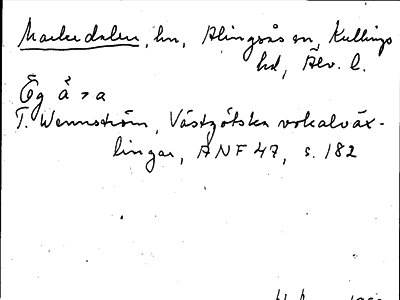 Markedalen, hn, Alingsås sn, Kullings
hd, Älv. l.
Eg å > a
T. Wennström, Västgötska vokalväx-
lingar, ANF 47, s. 182